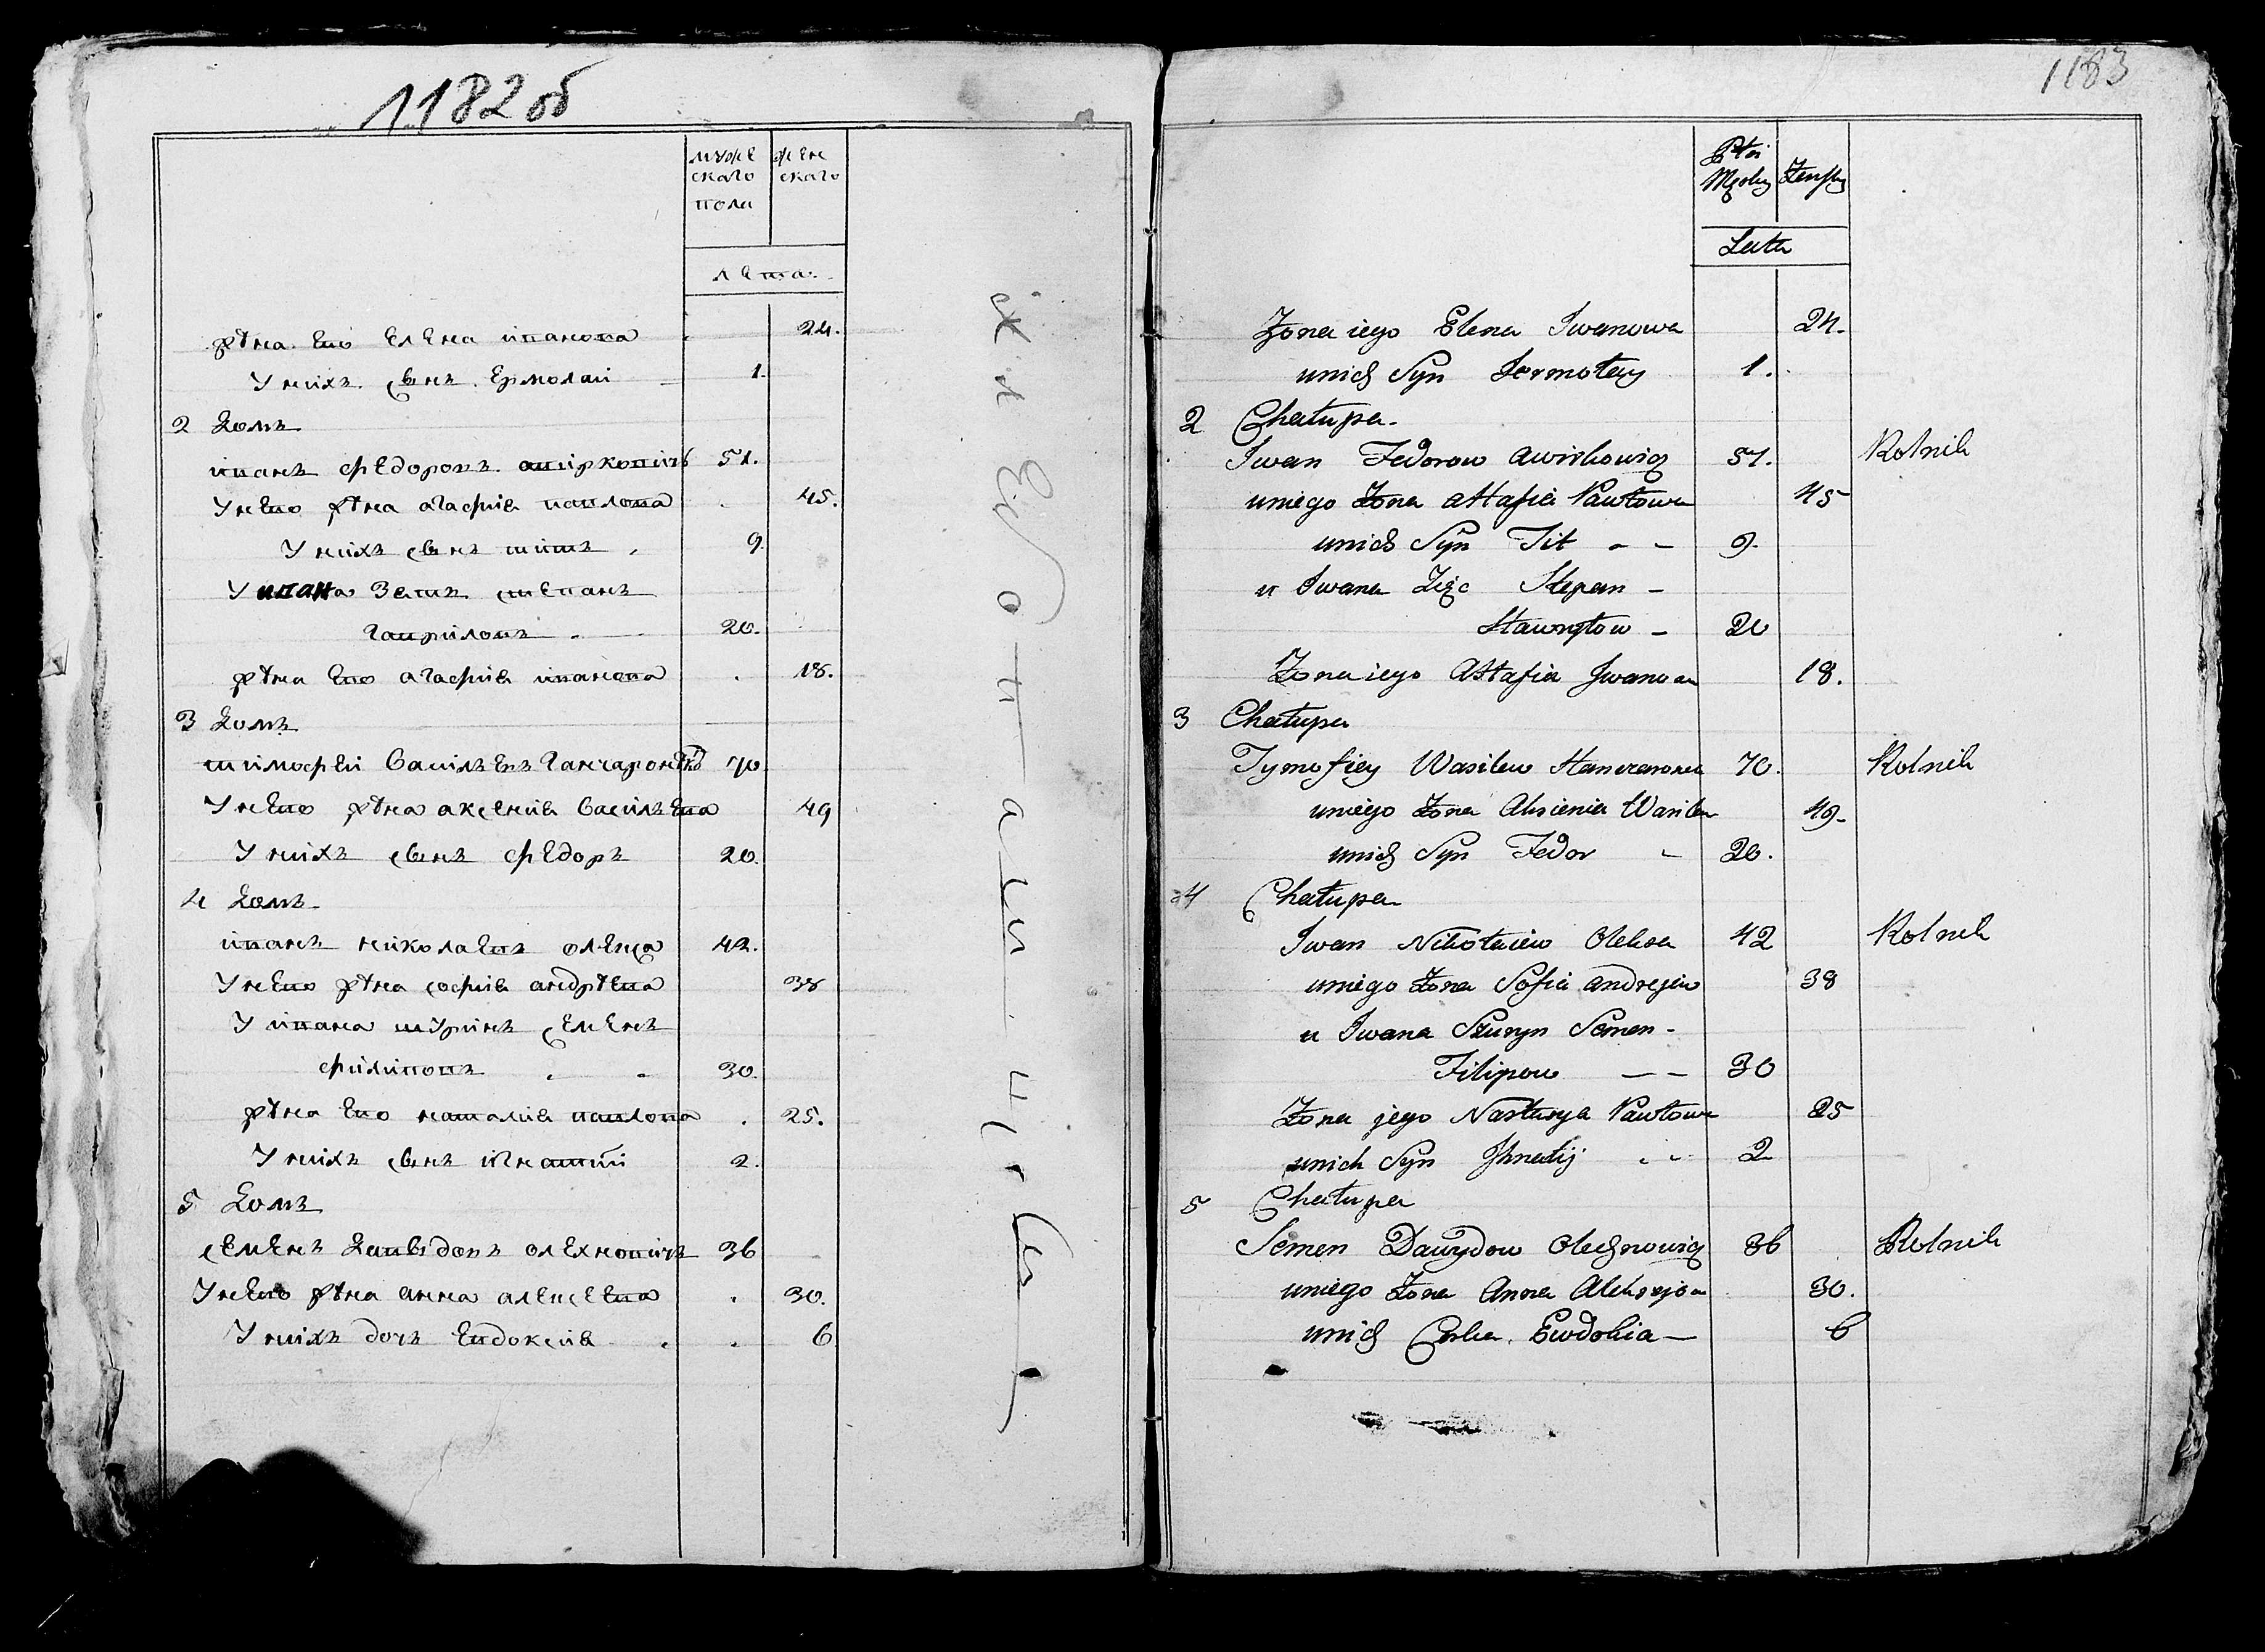 1182об
мужескаго пола
женскаго
лета.
жена. Его Елена иванова 24.
У нихъ. сынъ. Ермолаи 1.
2 Домъ
иванъ федоровъ. авирковичъ 51.
У него жена агафия павлова 45.
У нихъ сынъ титъ 9.
У ивана Зять степанъ
гавриловъ 20.
жена Его агафия иванова 18.
3 Домъ
тимофеи Василевъ Ганчаронокъ 70
У него жена аксения Василева 49
У нихъ сынъ федоръ 20.
4 Домъ
иванъ николаевъ олекса 42.
У него жена софия андреева 38
У ивана шуринъ семенъ
филиповъ 30.
жена Его наталия павлова 25.
У нихъ сынъ игнатіи 2.
5 Домъ
семенъ Давыдовъ олехновичъ 36
У него жена анна алексеева 30.
У нихъ дочь Евдокия 6
1183
Płci Męskiej Żeńskiej
Lata
Żona iego Elena Iwanowa 24.
unich Syn Jermołay 1.
2 Chałupa.
Iwan Fedorow Awirkowicz 51. Rolnik
uniego Żona Ahafia Pawłowa 45
unich Syn Tit 9.
u Iwana Zięc Stepan
Hawryłow 20
Żona iego Ahafia Iwanowa 18.
3 Chałupa
Tymofiey Wasilew Hanczaronek 70. Rolnik
uniego Żona Aksienia Wasilew 49.
unich Syn Fedor 20.
4 Chałupa
Iwan Nikołaiew Oleksa 42 Rolnik
uniego Żona Sofia Andrejew 38
u Iwana Szuryn Semen
Filipow 30
Żona jego Nastazya Pawłowa 25
unich Syn Ihnatij 2
5 Chałupa
Semen Dawydow Olechnowicz 36 Rolnik
uniego Żona Anna Aleksejowa 30.
unich Corka Ewdokia 6